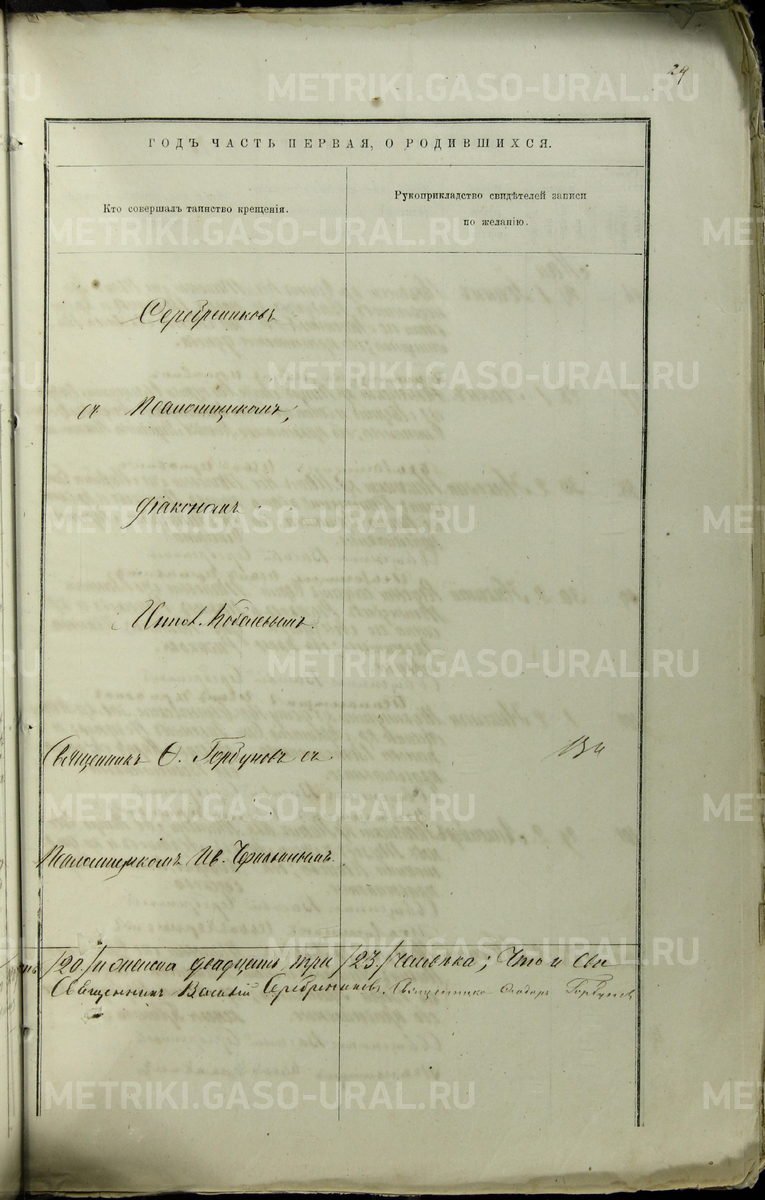 29
ГОДЪ ЧАСТЬ ПЕРВАЯ, О РОДИВШИХСЯ.
Кто совершалъ таинство крещенія.
Рукоприкладство свидѣтелей записи
по желанію.
Серебрениковъ
съ Псаломщикомъ,
діакономъ
Священникъ Ѳ. Горбуновъ съ
Псаломщикомъ Ив.
/20./ и женска двадцать три /23./ человѣка; Что и сви
Священникъ Василій Серебрениковъ. Священникъ Ѳеодоръ Горбуновъ
METRIKI.GASO-URAL.RU